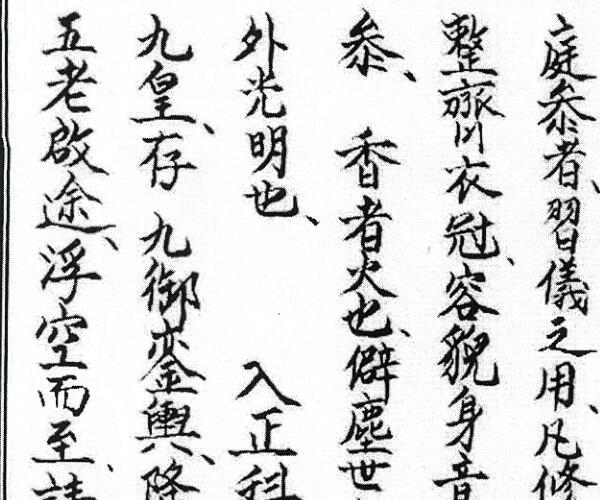 庭叅者、習儀之用、凡修
整齊衣冠、容貌身音
叅、香者火也、僻塵世
外光明也、 入正科
九皇、存九御鑾輿、降
五老啟途、浮空而至、請